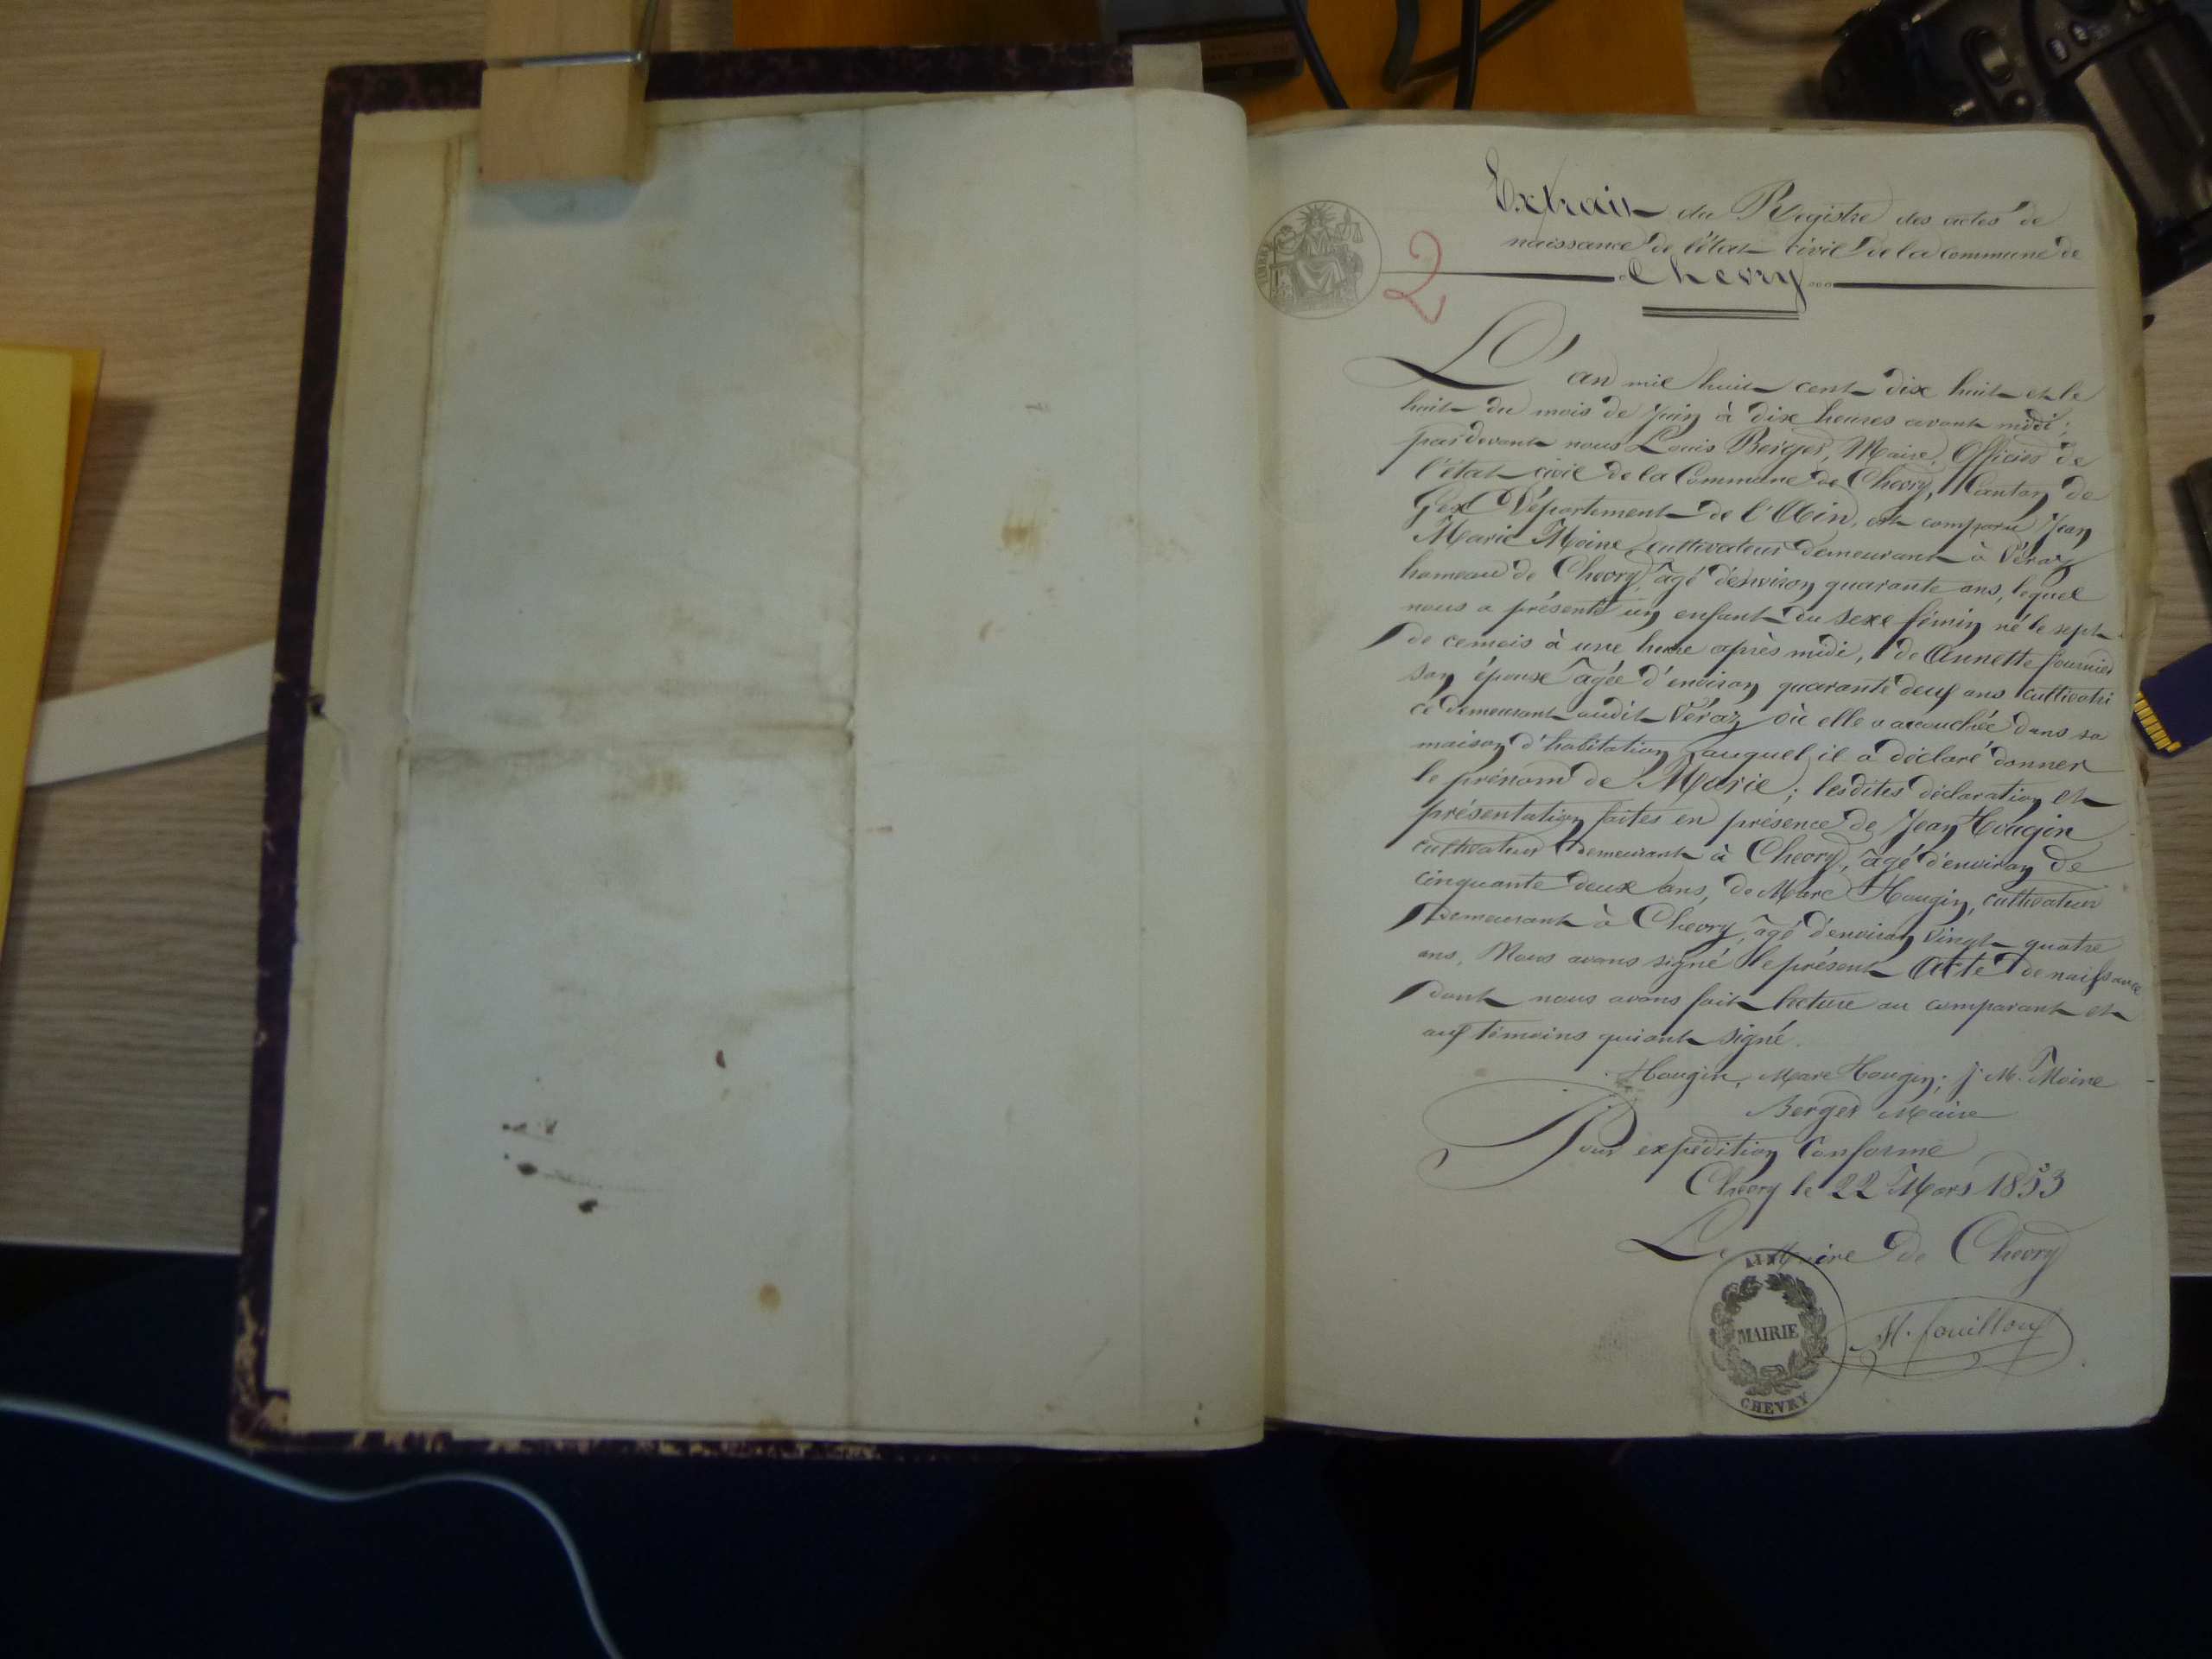 Extrait du Registre des actes de
naissance de l'état civil de la commune de
Chevry
2
L'an mil huit cent dix huit et le
huit du mois de Juin à dix heures avant midi;
pardevant nous Louis Berger, Maire, Officier de
l'état civil de la Commune de Chevry, Canton de
Gex Département de l'Ain, est comparu Jean
Marie Moine cultivateur demeurant à Véraz
hameau de Chevry, âgé d'environ quarante ans, lequel
nous a présenté un enfant du sexe fémin né le sept
de ce mois à une heure après midi, de Annette fournier
son épouse âgée d'environ quarante deux ans cultivatri
ce demeurant audit Véraz où elle a accouchée dans sa
maison d'habitation, auquel il a déclaré donner
le prénom de Marie; lesdites déclaration et
présentation faites en présence de Jean Hougin
cultivateur demeurant à Chevry, âgé d'environ de
cinquante deux ans, de Marc Hougin, cultivateur
demeurant à Chevry, âgé d'environ vingt quatre
ans, Nous avons signé le présent Acte de naissance
dont nous avons fait lecture au comparant et
aux témoins qui ont signé.
Hougin, Marc Hougin; J. M. Moine
Berger Maire
Pour expédition Conforme
Chevry le 22 Mars 1853
Le Maire de Chevry
AIN
MAIRIE
CHEVRY
H. fouilloux